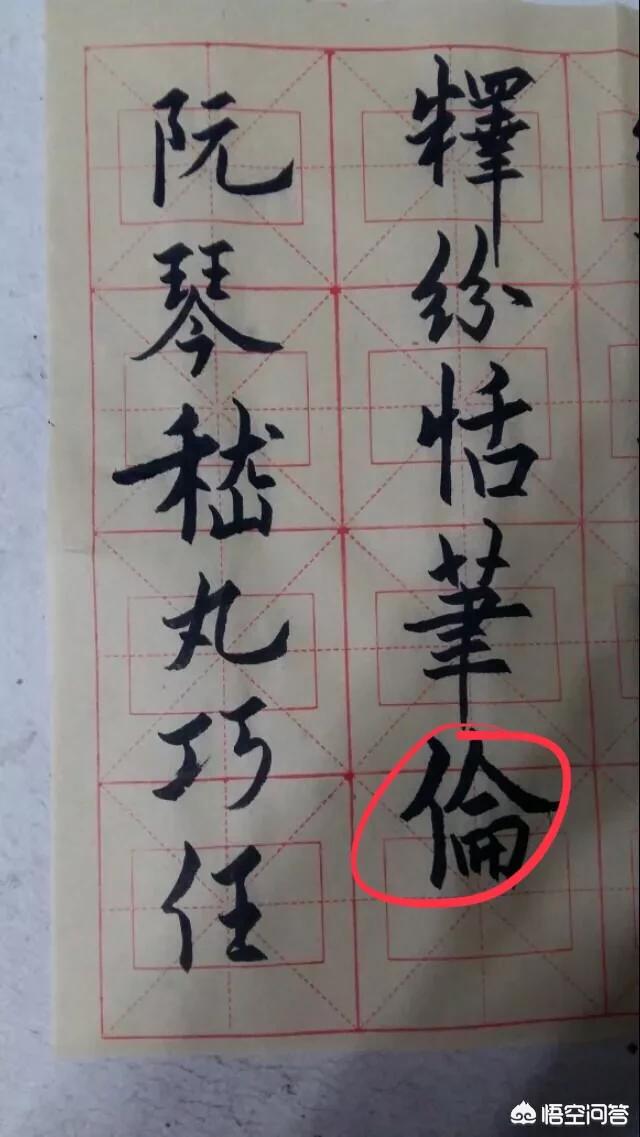 釋紛恬筆倫
阮琴嵇丸巧任
悟空问答